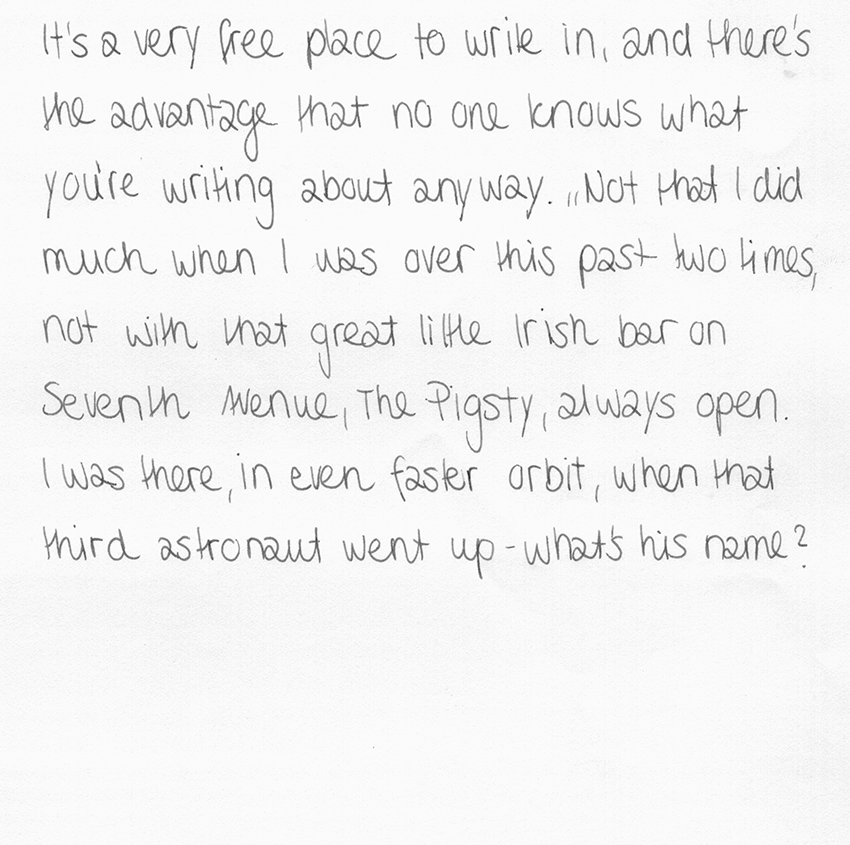 It's a very free place to write in, and there's
the advantage that no one knows what
you're writing about anyway. „Not that I did
much when I was over this past two times,
not with that great little Irish bar on
Seventh Avenue, The Pigsty, always open.
I was there, in even faster orbit, when that
third astronaut went up - what's his name?